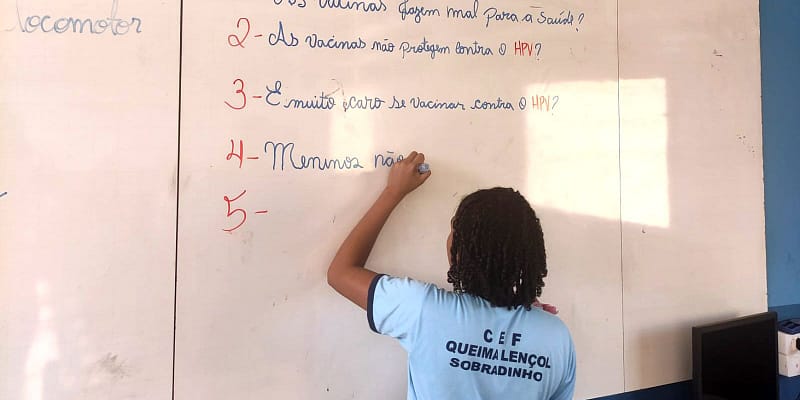 vacinas fazem mal para a saúde?
locomotor
2- As vacinas não protegem contra o HPV?
3- É muito caro se vacinar contra o HPV?
4- Meninos não
5-
CEF
QUEIMA LENÇOL
SOBRADINHO